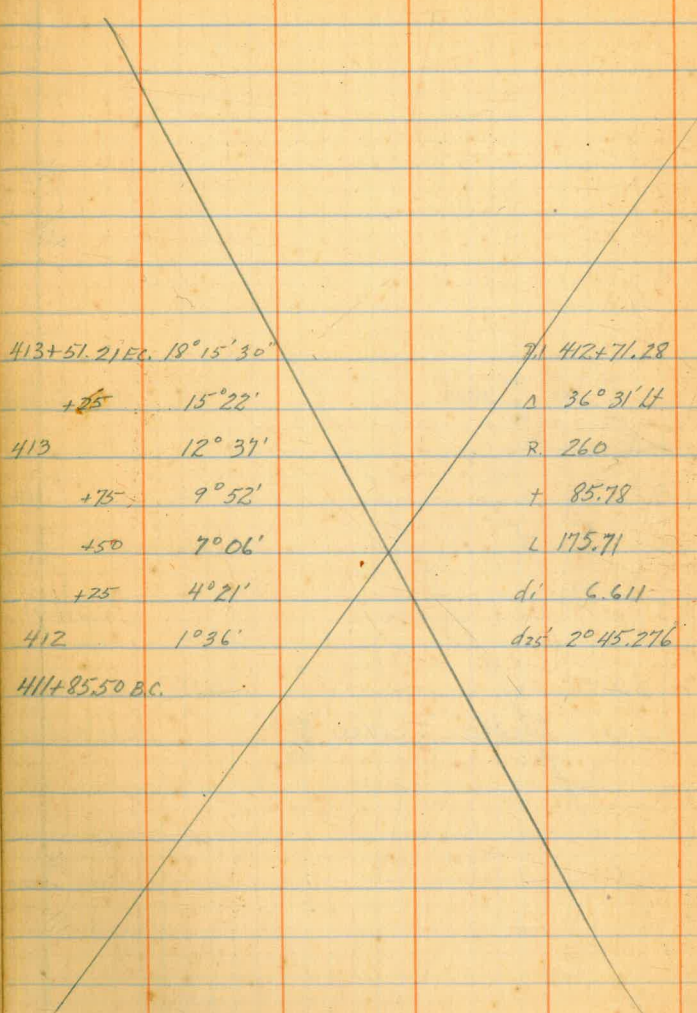 413+51.21 E.C. 18°15'30" P.I 412+71.28
+25 15°22' Δ 36°31' Lt
413 12°37' R. 260
+75 9°52' t 85.78
+50 7°06' L 175.71
+25 4°21' d1' 6.611
412 1°36' d25' 2°45.276
411+85.50 B.C.